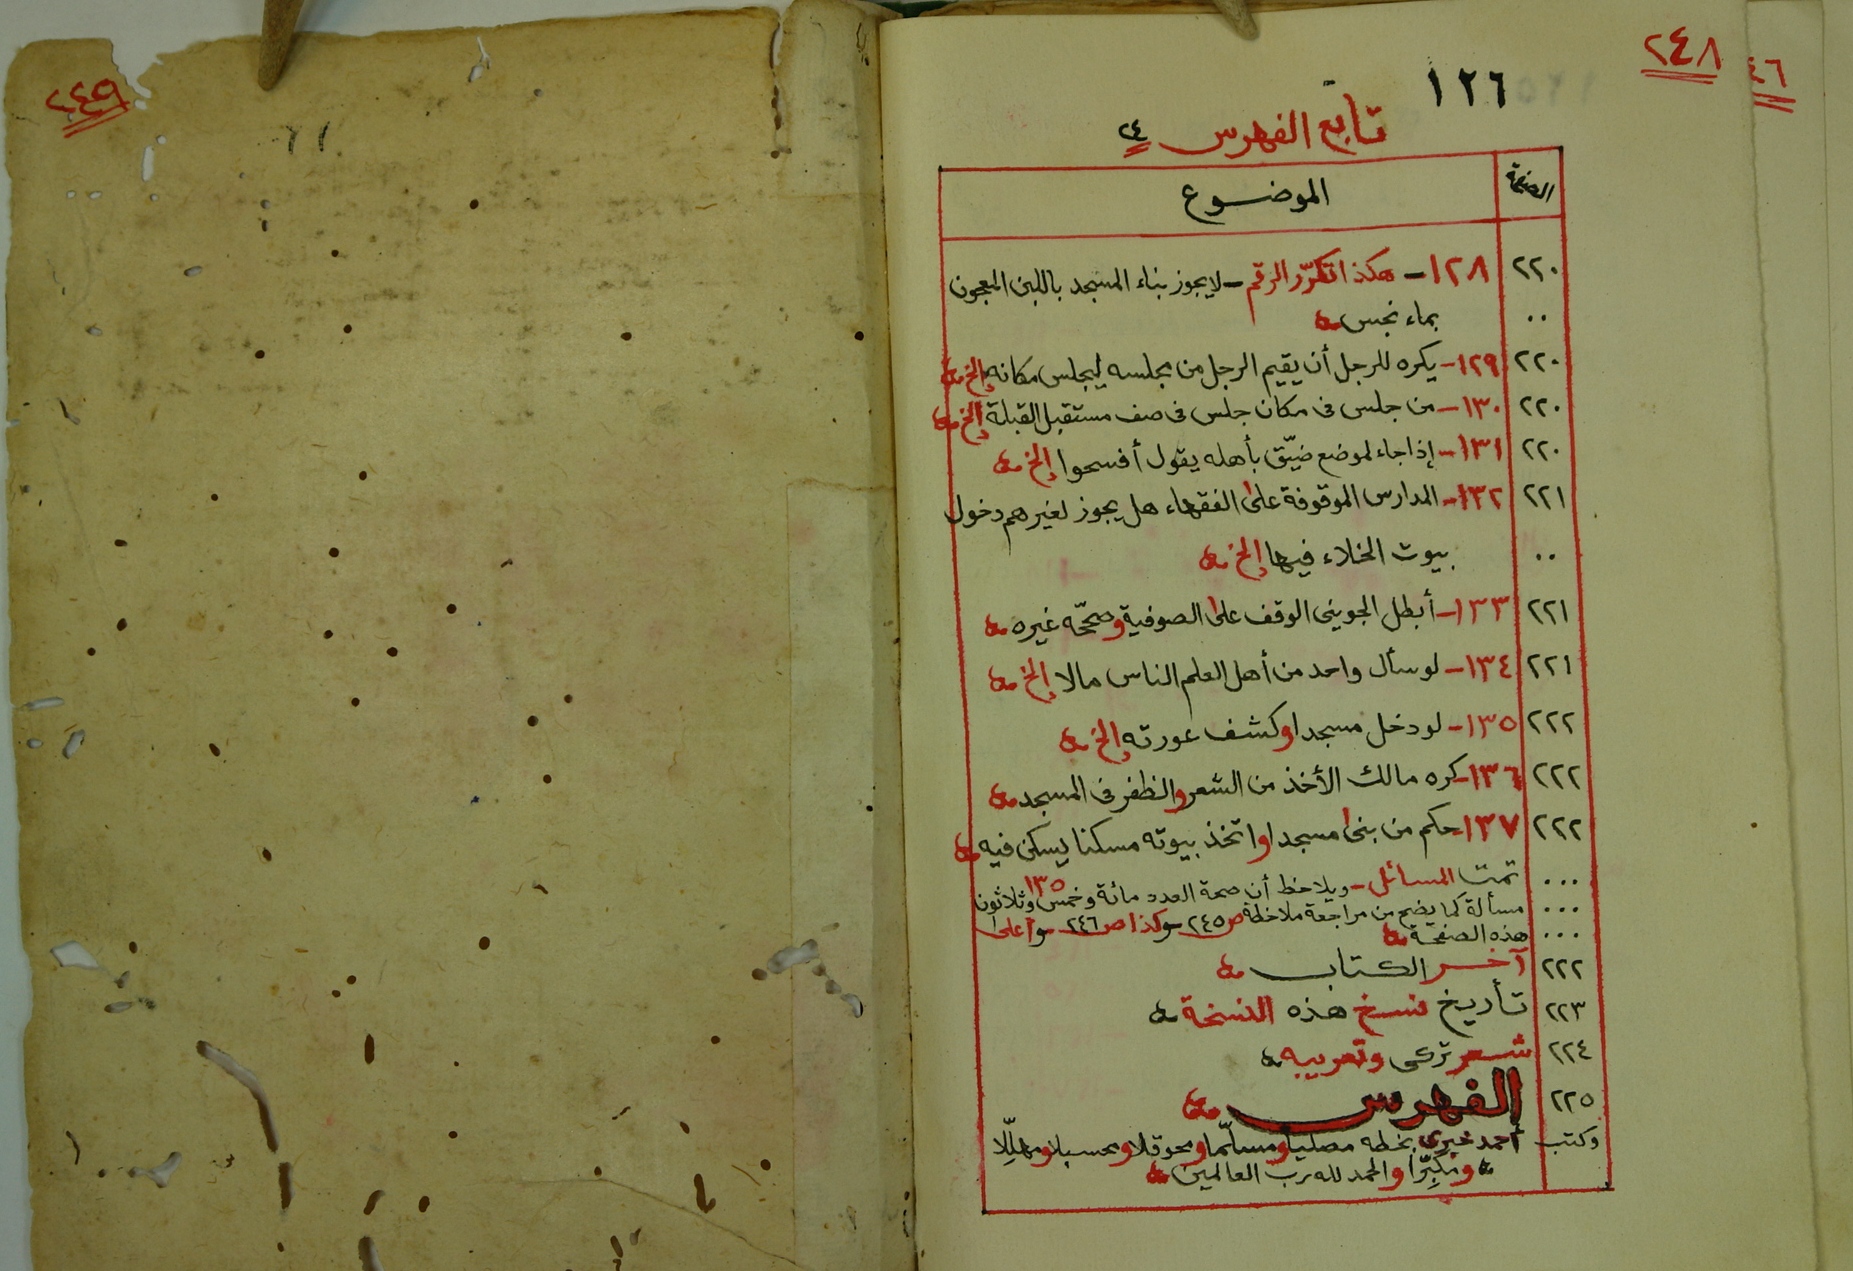 ٢٤٨
٤٦
١٢٦
تابع الفهرس ٢٤
الصفحة الموضوع
٢٢٠ ١٢٨- هكذا تكرّر الرقم - لا يجوز بناء المسجد باللبن المعجون
.. بماء نجس
٢٢٠ ١٢٩- يكره للرجل أن يقيم الرجل من مجلسه ليجلس مكانه إلخ
٢٢٠ ١٣٠- من جلس فى مكان جلس فى صف مستقبل القبلة إلخ
٢٢٠ ١٣١- إذا جاء لموضع ضيّق بأهله يقول أفسحوا إلخ
٢٢١ ١٣٢- المدارس الموقوفة على الفقهاء هل يجوز لغيرهم دخول
.. بيوت الخلاء فيها إلخ
٢٢١ ١٣٣- أبطل الجوينى الوقف على الصوفية وصحّحه غيره
٢٢١ ١٣٤- لو سأل واحد من أهل العلم الناس مالا إلخ
٢٢٢ ١٣٥- لو دخل مسجدا وكشف عورته إلخ
٢٢٢ ١٣٦- كره مالك الأخذ من الشعر والظفر فى المسجد
٢٢٢ ١٣٧- حكم من بنى مسجدا واتخذ بيوته مسكنا يسكن فيه
... تمت المسائل - ويلاحظ أن صحة العدد مائة وخمس وثلاثون ١٣٥
... مسألة كما يضح من مراجعة ملاخظة ص ٢٤٥ وكذا ص ٢٤٦ وأعلى
... هذه الصفحة
٢٢٢ آخر الكتاب
٢٢٣ تأريخ نسخ هذه النسخة
٢٢٤ شعر تركى وتعريبه
٢٢٥ الفهرس
وكتب أحمد خيرى بخطه مصليا ومسلّما ومحوقلا ومحسبلا ومهلّلا
ومكبّرا والحمد لله رب العالمين
٢٤٩